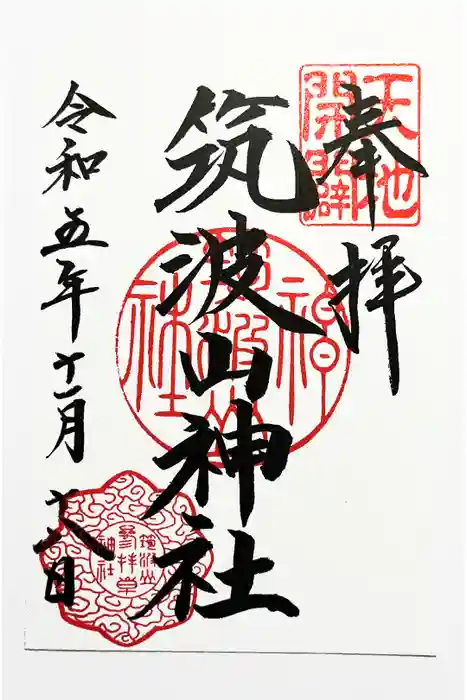 奉拝
天地開闢
筑波山神社
筑波山神社
筑波山神社
参拝章
令和五年十一月十八日